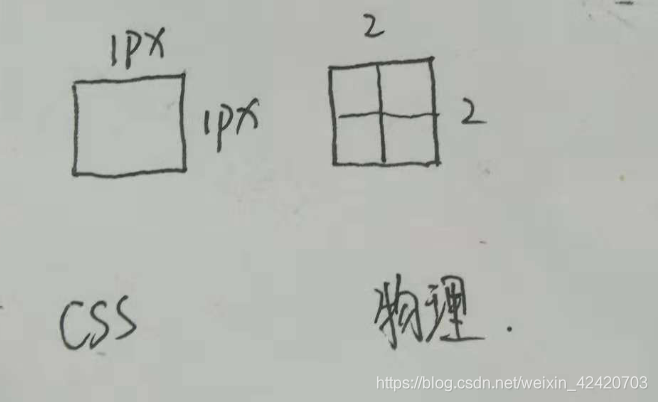 1px
2
1px
2
CSS
物理.
https://blog.csdn.net/weixin_42420703